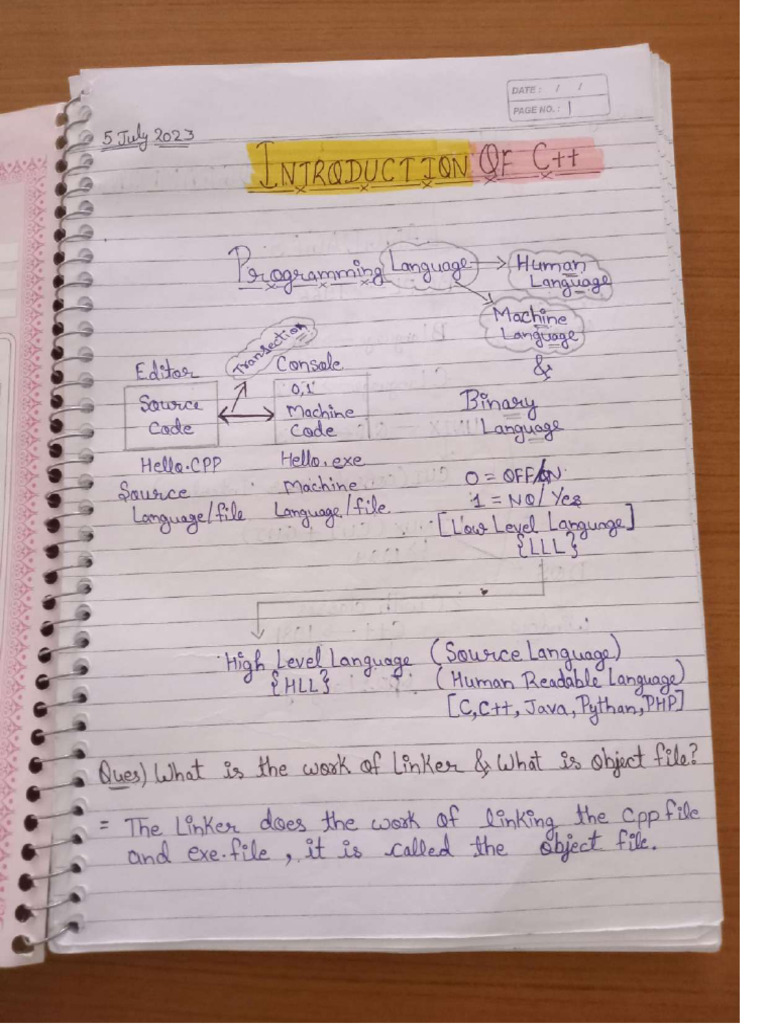 DATE: / /
PAGE NO.: 1
5 July 2023
INTRODUCTION OF C++
Programming Language → Human Language
Machine Language
&
Binary Language
Transection
Editor
Source Code
Hello.CPP
Source Language/file
Console
0,1
Machine Code
Hello.exe
Machine Language/file
0 = OFF/ON
1 = NO/Yes
[Low Level Language]
{LLL}
High Level Language (Source Language)
{HLL} (Human Readable Language)
[C, C++, Java, Python, PHP]
Ques) What is the work of Linker & What is object file?
= The Linker does the work of linking the Cpp file
and exe.file, it is called the object file.